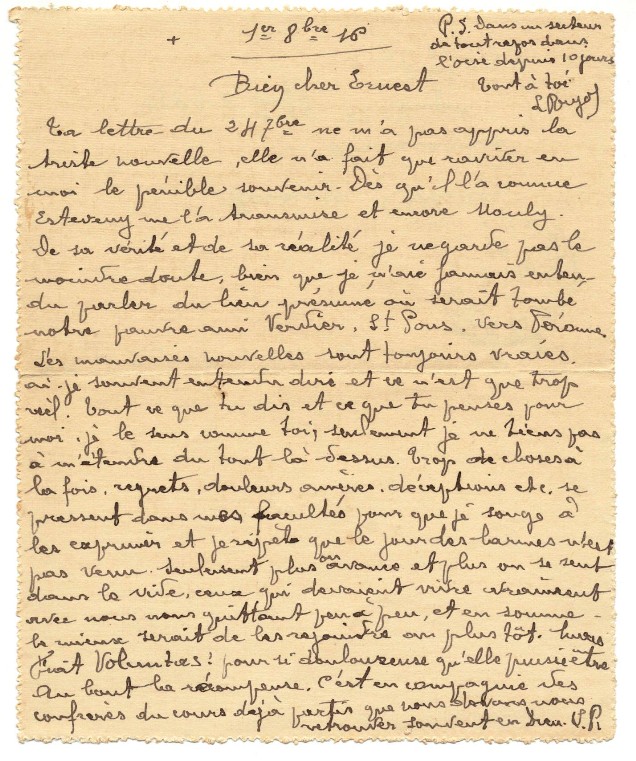 + 1er 8bre 16
P. S. Dans un secteur
de tout repos dans
l'oise depuis 10 jours
Tout à toi
Bien cher Ernest
Ta lettre du 24 7bre ne m'a pas appris la
triste nouvelle, elle n'a fait que raviver en
moi le pénible souvenir. Dès qu'il l'a connue
Esteveny me l'a transmise et encore Mouly.
De sa vérité et de sa réalité je ne garde pas le
moindre doute, bien que je n'aie jamais enten-
du parler du lieu présumé où serait tombé
notre pauvre ami Verdier, St Pons, vers Péronne
Les mauvaises nouvelles sont toujours vraies,
ai-je souvent entendu dire et ce n'est que trop
réel. Tout ce que tu dis et ce que tu penses pour
moi, je le sens comme toi, seulement je ne tiens pas
à m'étendre du tout là dessus. Trop de choses à
la fois, regrets, douleurs amères, déceptions etc. se
pressent dans mes facultés pour que je songe à
les exprimer et je répète que le jour des larmes n'est
pas venu. Seulement plus on avance et plus on se sent
dans le vide, ceux qui devaient vivre vraiment
avec nous nous quittant peu à peu, et en somme
le mieux serait de les rejoindre au plus tôt. Mais
Fiat Voluntas! pour si douloureuse qu'elle puisse être
Au bout la récompense. C'est en compagnie des
confrères du cours déjà partis que nous devons nous
retrouver souvent en Dieu. L. P.